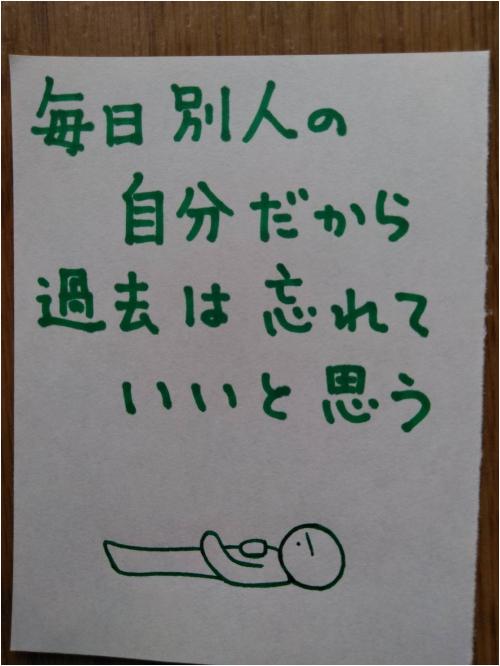 毎日別人の
自分だから
過去は忘れて
いいと思う